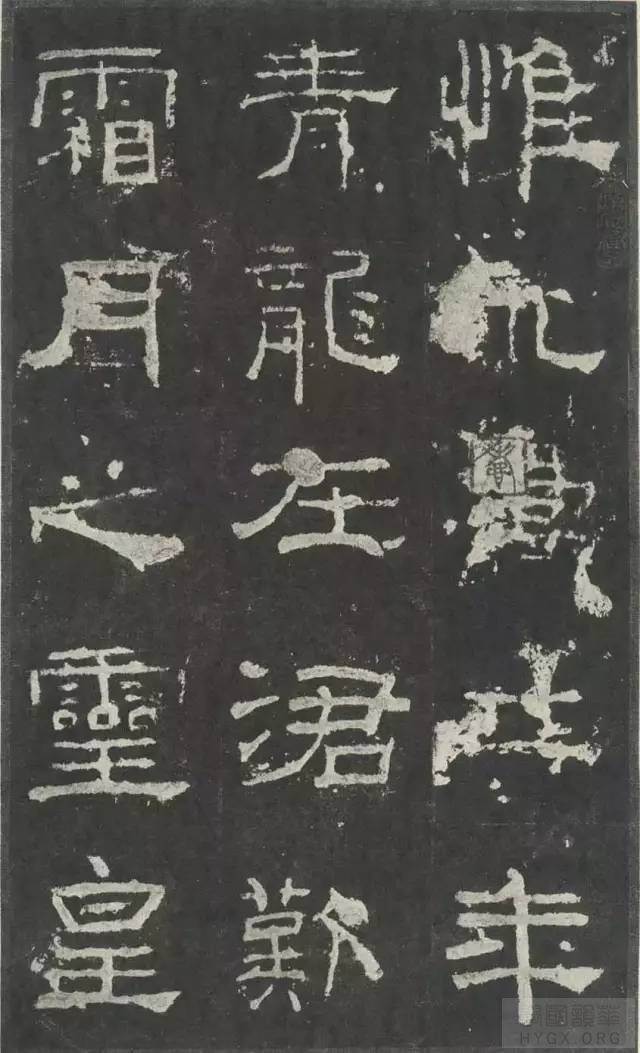 惟永壽二年
青龍在涒歎
霜月之靈皇
學國韻華
HYGX.ORG